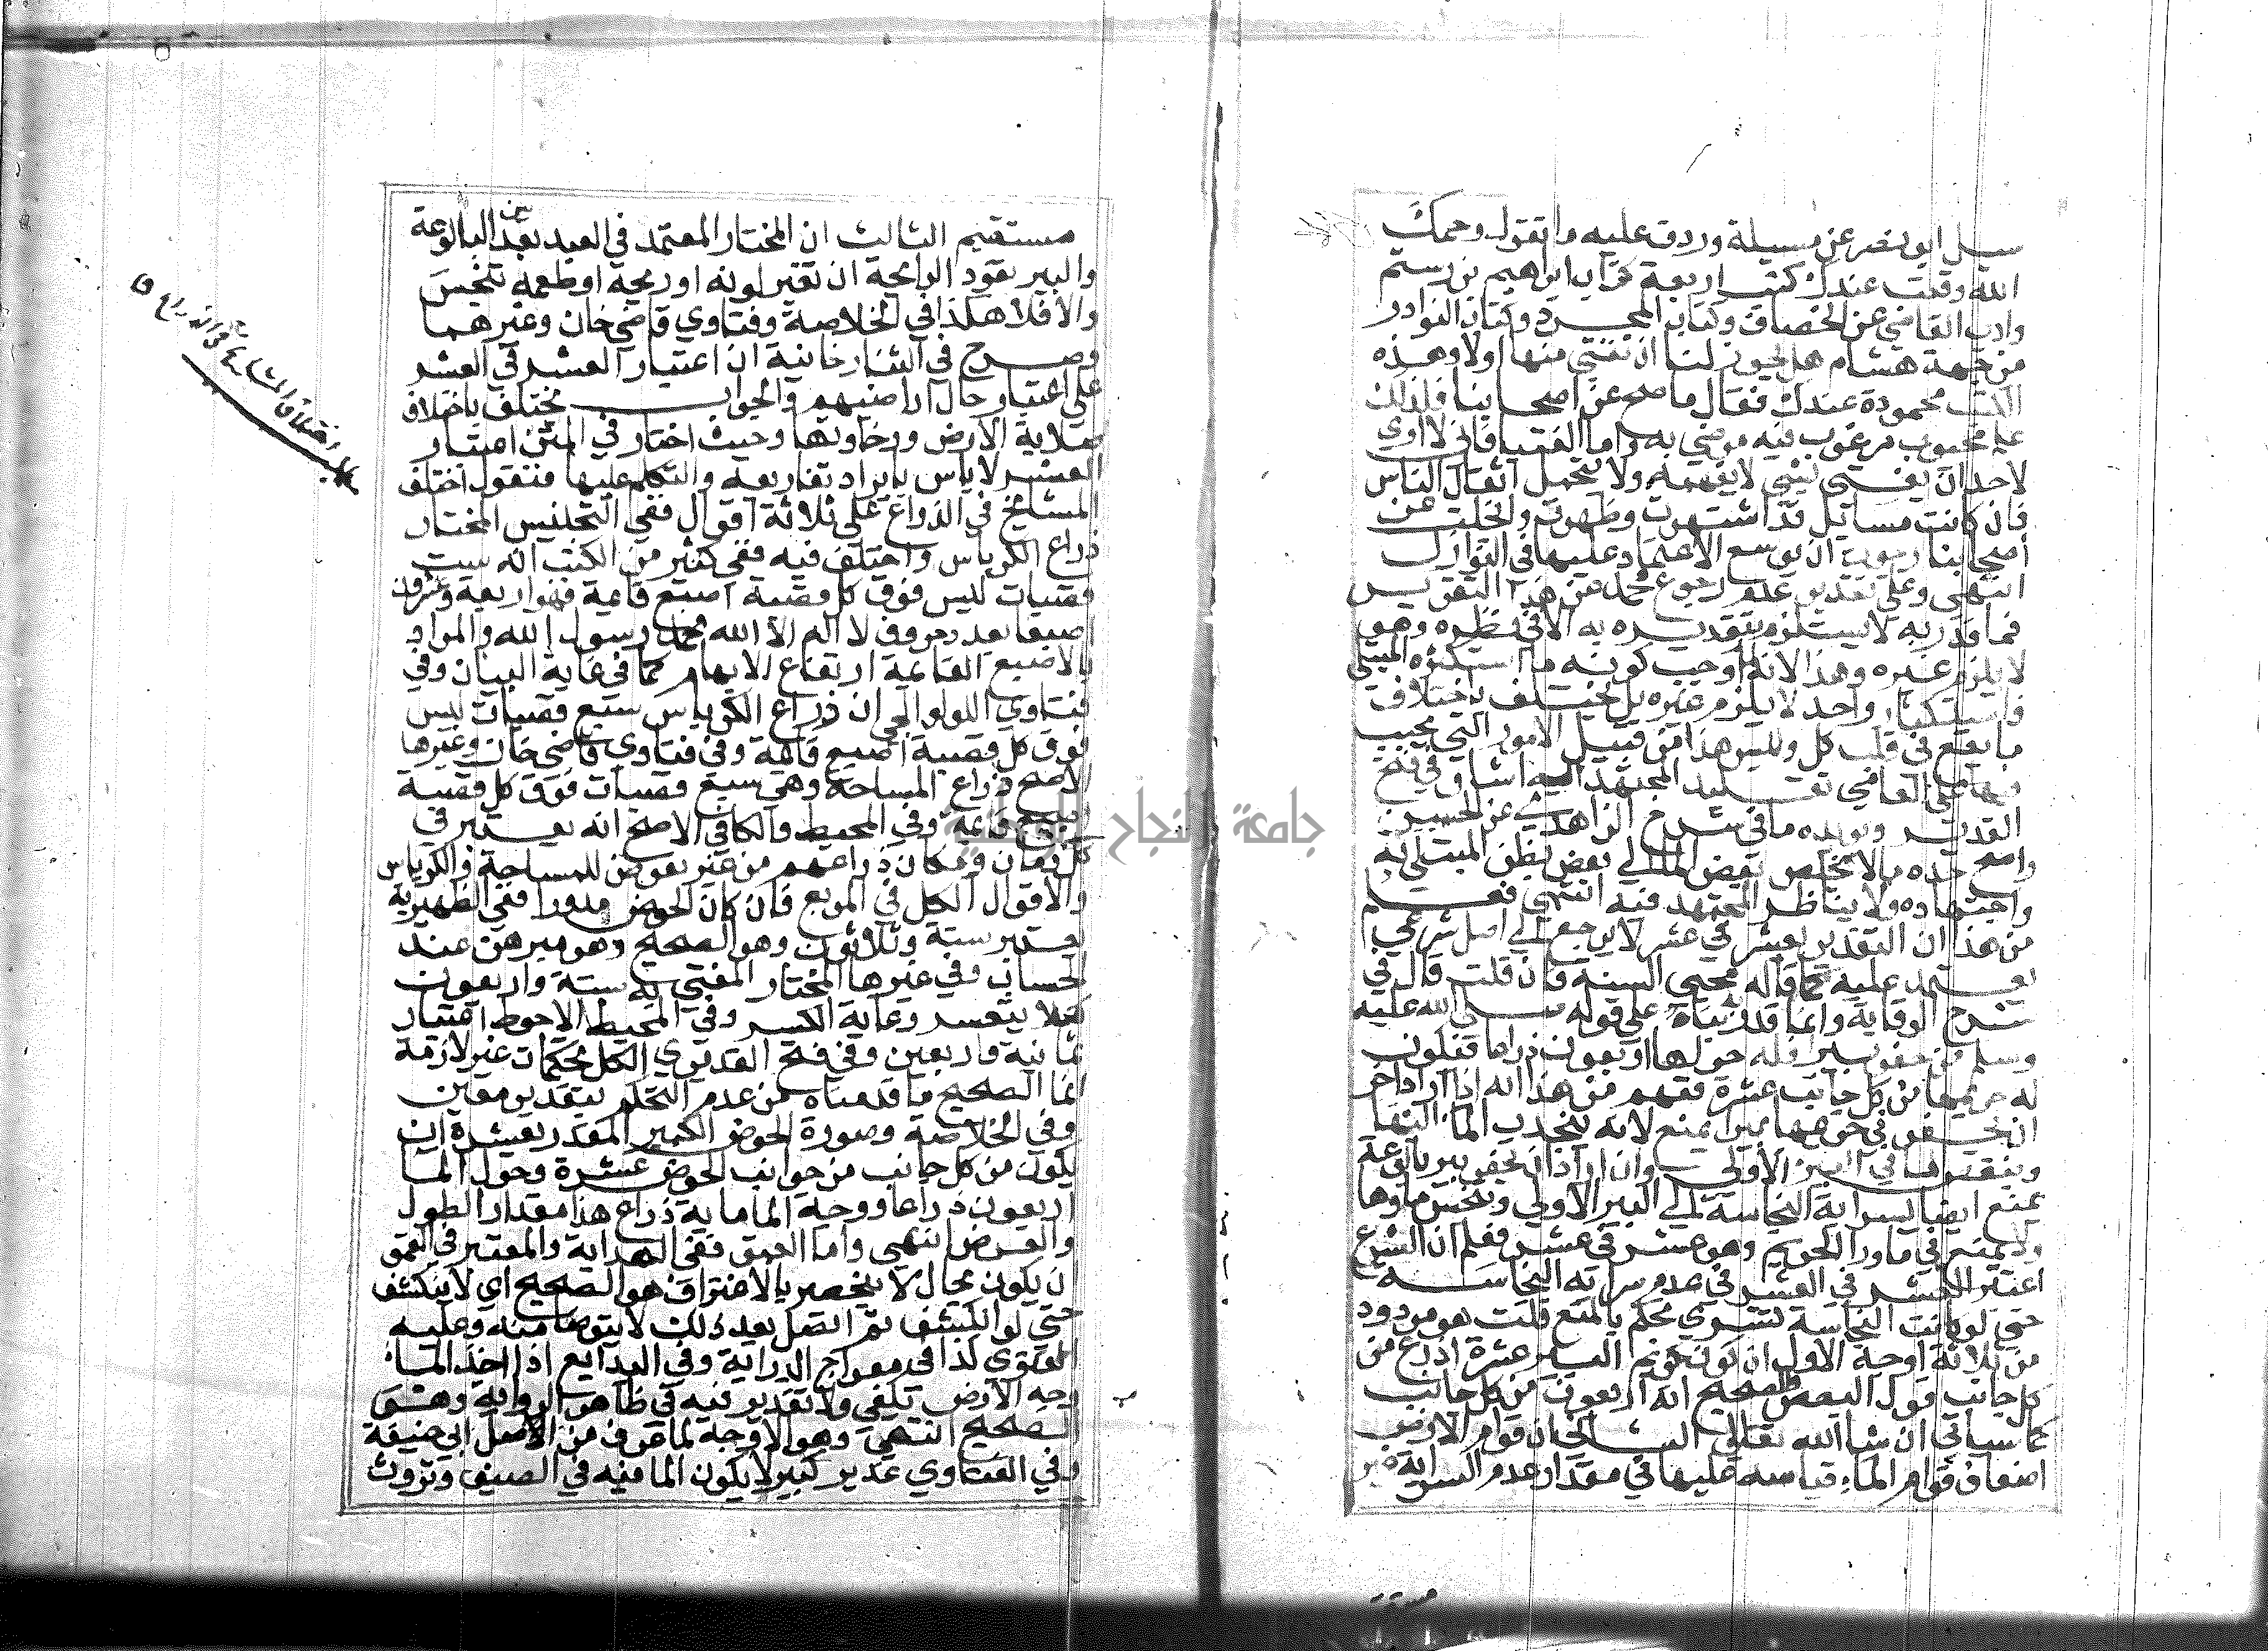 سيل ابو نصر عن مسيلة وردت عليه ما تقول رحمك
الله وقعت عندك كتب اربعة كتاب ابراهيم بن رستم
وادب القاضي عن الخصاف وكتاب المجرد وكتاب النوادر
من جهة هشام هل يجوز لنا ان نفتي منها اولا وهذه
الكتب محمودة عندك فقال ما صح عن اصحابنا فذلك
علم محبوب مرغوب فيه مرضي به واما الفتيا فاني لا اري
لاحد ان يفتي بشي لا يفهمه ولا يتحمل اثقال الناس
فان كانت مسايل قد اشتهرت وظهرت وانجلت عن
اصحابنا رجوت ان يوسع الاعتماد عليها في النوازل
انتهى وعلى تقدير عدم رجوع محمد عن هذا التقدير
فما قدر به لا يستلزم تقديره به الا في نظره وهو
لا يلزم غيره وهذا لانه لما وجب كونه ما استكثره المبتلى
فاستكثار واحد لا يلزم غيره بل يختلف باختلاف
ما يقع في قلب كل وليس هذا من قبيل الامور التي يجب
فيها على العامي تقليد المجتهد اليه اشار في فتح
القدير ويويده ما في شرح الزاهدي عن الحسن
واصح حده ما لا يخلص بعض الماء الى بعض بظن المبتلى به
واجتهاده ولا يناظر المجتهد فيه انتهى فعلم
من هذا ان التقدير بعشر في عشر لا يرجع الى اصل شرعي
يعتمد عليه كما قاله محيي السنة فان قلت قال في
شرح الوقاية وانما قدرناه على قوله صلى الله عليه
وسلم من حفر بير فله حولها اربعون ذراعا فيكون
له حريمها من كل جانب عشرة ففهم من هذا انه اذا اراد اخر
ان يحفر في حريمها بيرا يمنع لانه ينجذب الما اليها
وينقص في البير الاولى وان اراد ان يحفر بير بالوعة
يمنع ايضا لسراية النجاسة الى البير الاولى وينجس ماوها
ولا يمنع في ما ورا الحريم وهو عشر في عشر فعلم ان الشرع
اعتبر العشر في العشر في عدم سراية النجاسة
حتى لو كانت النجاسة تسري يحكم بالمنع قلت هو مردود
من ثلاثة اوجه الاول ان كون حريم البير عشرة اذرع من
كل جانب قول البعض والصحيح انه اربعون من كل جانب
كما سياتي ان شا الله تعالى الثاني ان قوام الارض
اضعاف قوام الماء فقياسه عليها في مقدار عدم السراية غير
مستقيم
مستقيم الثالث ان المختار المعتمد في البعد بين البالوعة
والبير نفوذ الرايحة ان تغير لونه او ريحه او طعمه تنجس
والا فلا هكذا في الخلاصة وفتاوي قاضي خان وغيرهما
وصرح في التتارخانية ان اعتبار العشر في العشر
على اعتبار حال اراضيهم والجواب يختلف باختلاف
صلابة الارض ورخاوتها وحيث اختار في المتن اعتبار
العشر لا باس بايراد تفاريعه والتكلم عليها فنقول اختلف
المشايخ في الذراع على ثلاثة اقوال ففي التجنيس المختار
ذراع الكرباس واختلف فيه ففي كثير من الكتب انه ست
قصبات ليس فوق كل قصبة اصبع قايمة فهو اربعة وعشرون
اصبعا بعدد حروف لا اله الا الله محمد رسول الله والمراد
بالاصبع القايمة ارتفاع الابهام كما في غاية البيان وفي
فتاوي الولوالجي ان ذراع الكرباس سبع قصبات ليس
فوق كل قصبة اصبع قايمة وفي فتاوي قاضي خان وغيرها
الاصح ذراع المساحة وهي سبع قصبات فوق كل قصبة
اصبع قايمة وفي المحيط والكافي الاصح انه يعتبر في
كل زمان ومكان ذراعهم من غير تعرض للمساحة والكرباس
والاقوال الكل في المربع فان كان الحوض مدورا ففي الظهيرية
يعتبر ستة وثلاثون وهو الصحيح وهو مبرهن عند
الحساب وفي غيرها المختار المفتى به ستة واربعون
كيلا يتعسر رعاية الكسر وفي المحيط الاحوط اعتبار
ثمانية واربعين وفي فتح القدير والكل تحكمات غير لازمة
انما الصحيح ما قدمناه من عدم التحكم بتقدير معين
وفي الخلاصة وصورة الحوض الكبير المقدر بعشرة ان
يكون من كل جانب من جوانب الحوض عشرة وحول الما
اربعون ذراعا ووجه الما ماية ذراع هذا مقدار الطول
والعرض انتهى واما العمق ففي الهداية والمعتبر في العمق
ان يكون بحال لا ينحصر بالاغتراف هو الصحيح اي لا ينكشف
حتى لو انكشف ثم اتصل بعد ذلك لا يتوضا منه وعليه
الفتوى كذا في معراج الدراية وفي البدايع اذا اخذ الماء
وجه الارض يكفي ولا تقدير فيه في ظاهر الرواية وهو
الصحيح انتهى وهو الاوجه لما عرف من اصل ابي حنيفة
وفي الفتاوي غدير كبير لا يكون الما فيه في الصيف وتروث
جامعة النجاح الوطنية